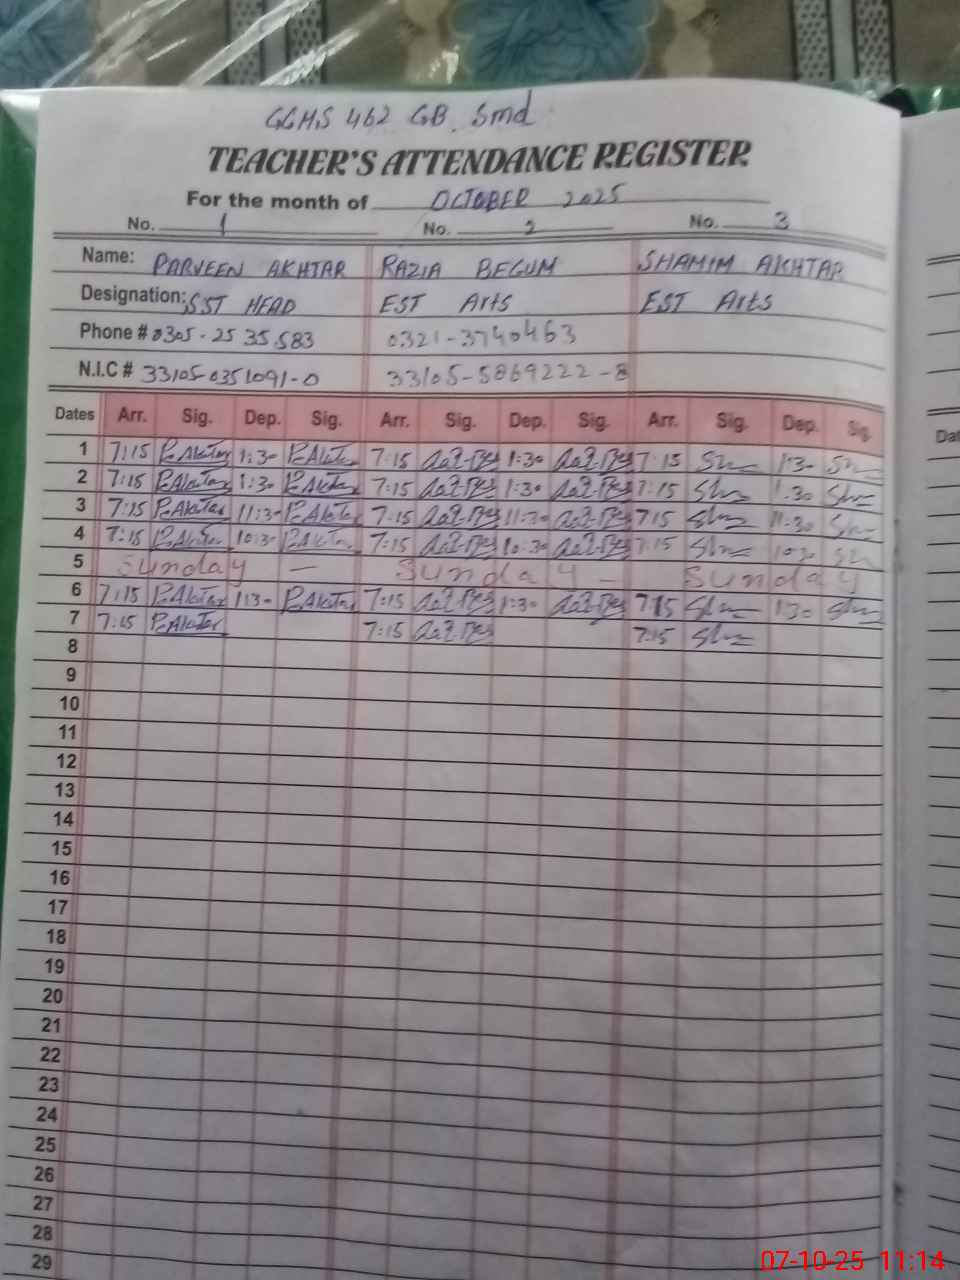 GGHS 462 GB Smd
TEACHER'S ATTENDANCE REGISTER
For the month of OCTOBER 2025
No. 1 No. 2 No. 3
Name: PARVEEN AKHTAR RAZIA BEGUM SHAMIM AKHTAR
Designation: SST HEAD EST Arts EST Arts
Phone # 0305-2535583 0321-3740463
N.I.C # 33105-0351091-0 33105-5869222-8
Dates Arr. Sig. Dep. Sig. Arr. Sig. Dep. Sig. Arr. Sig. Dep. Sig.
1 7:15 P.Akhtar 1:30 P.Akhtar 7:15 1:30 7:15 1:30
2 7:15 P.Akhtar 1:30 P.Akhtar 7:15 1:30 7:15 1:30
3 7:15 P.Akhtar 11:30 P.Akhtar 7:15 11:30 7:15 11:30
4 7:15 P.Akhtar 10:30 P.Akhtar 7:15 10:30 7:15 10:30
5 Sunday — Sunday — Sunday
6 7:15 P.Akhtar 1:30 P.Akhtar 7:15 1:30 7:15 1:30
7 7:15 P.Akhtar 7:15 7:15
8
9
10
11
12
13
14
15
16
17
18
19
20
21
22
23
24
25
26
27
28
29
07-10-25 11:14